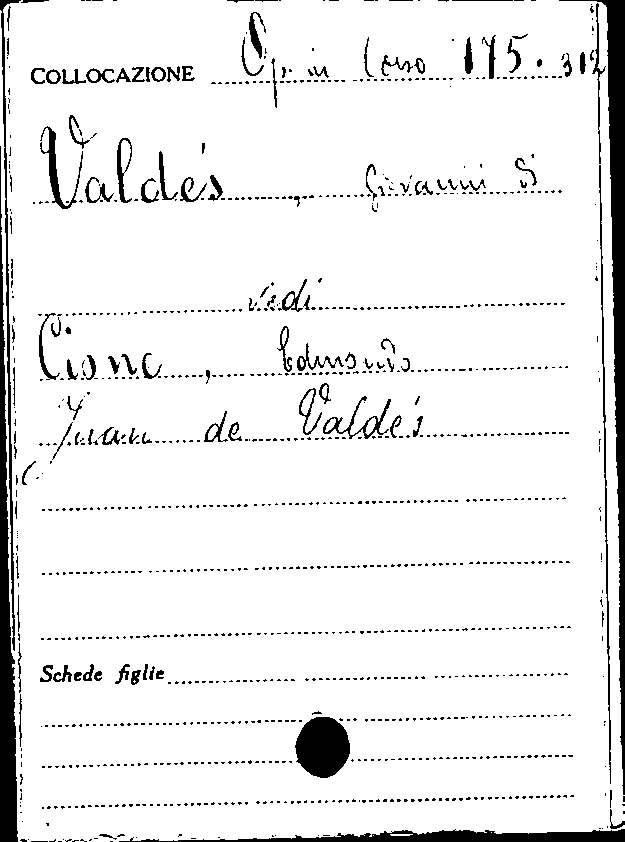 COLLOCAZIONE Op. in Corso 175. 312
Valdés, Giovanni di
vedi
Cione, Edmondo
Juan de Valdés
Schede figlie